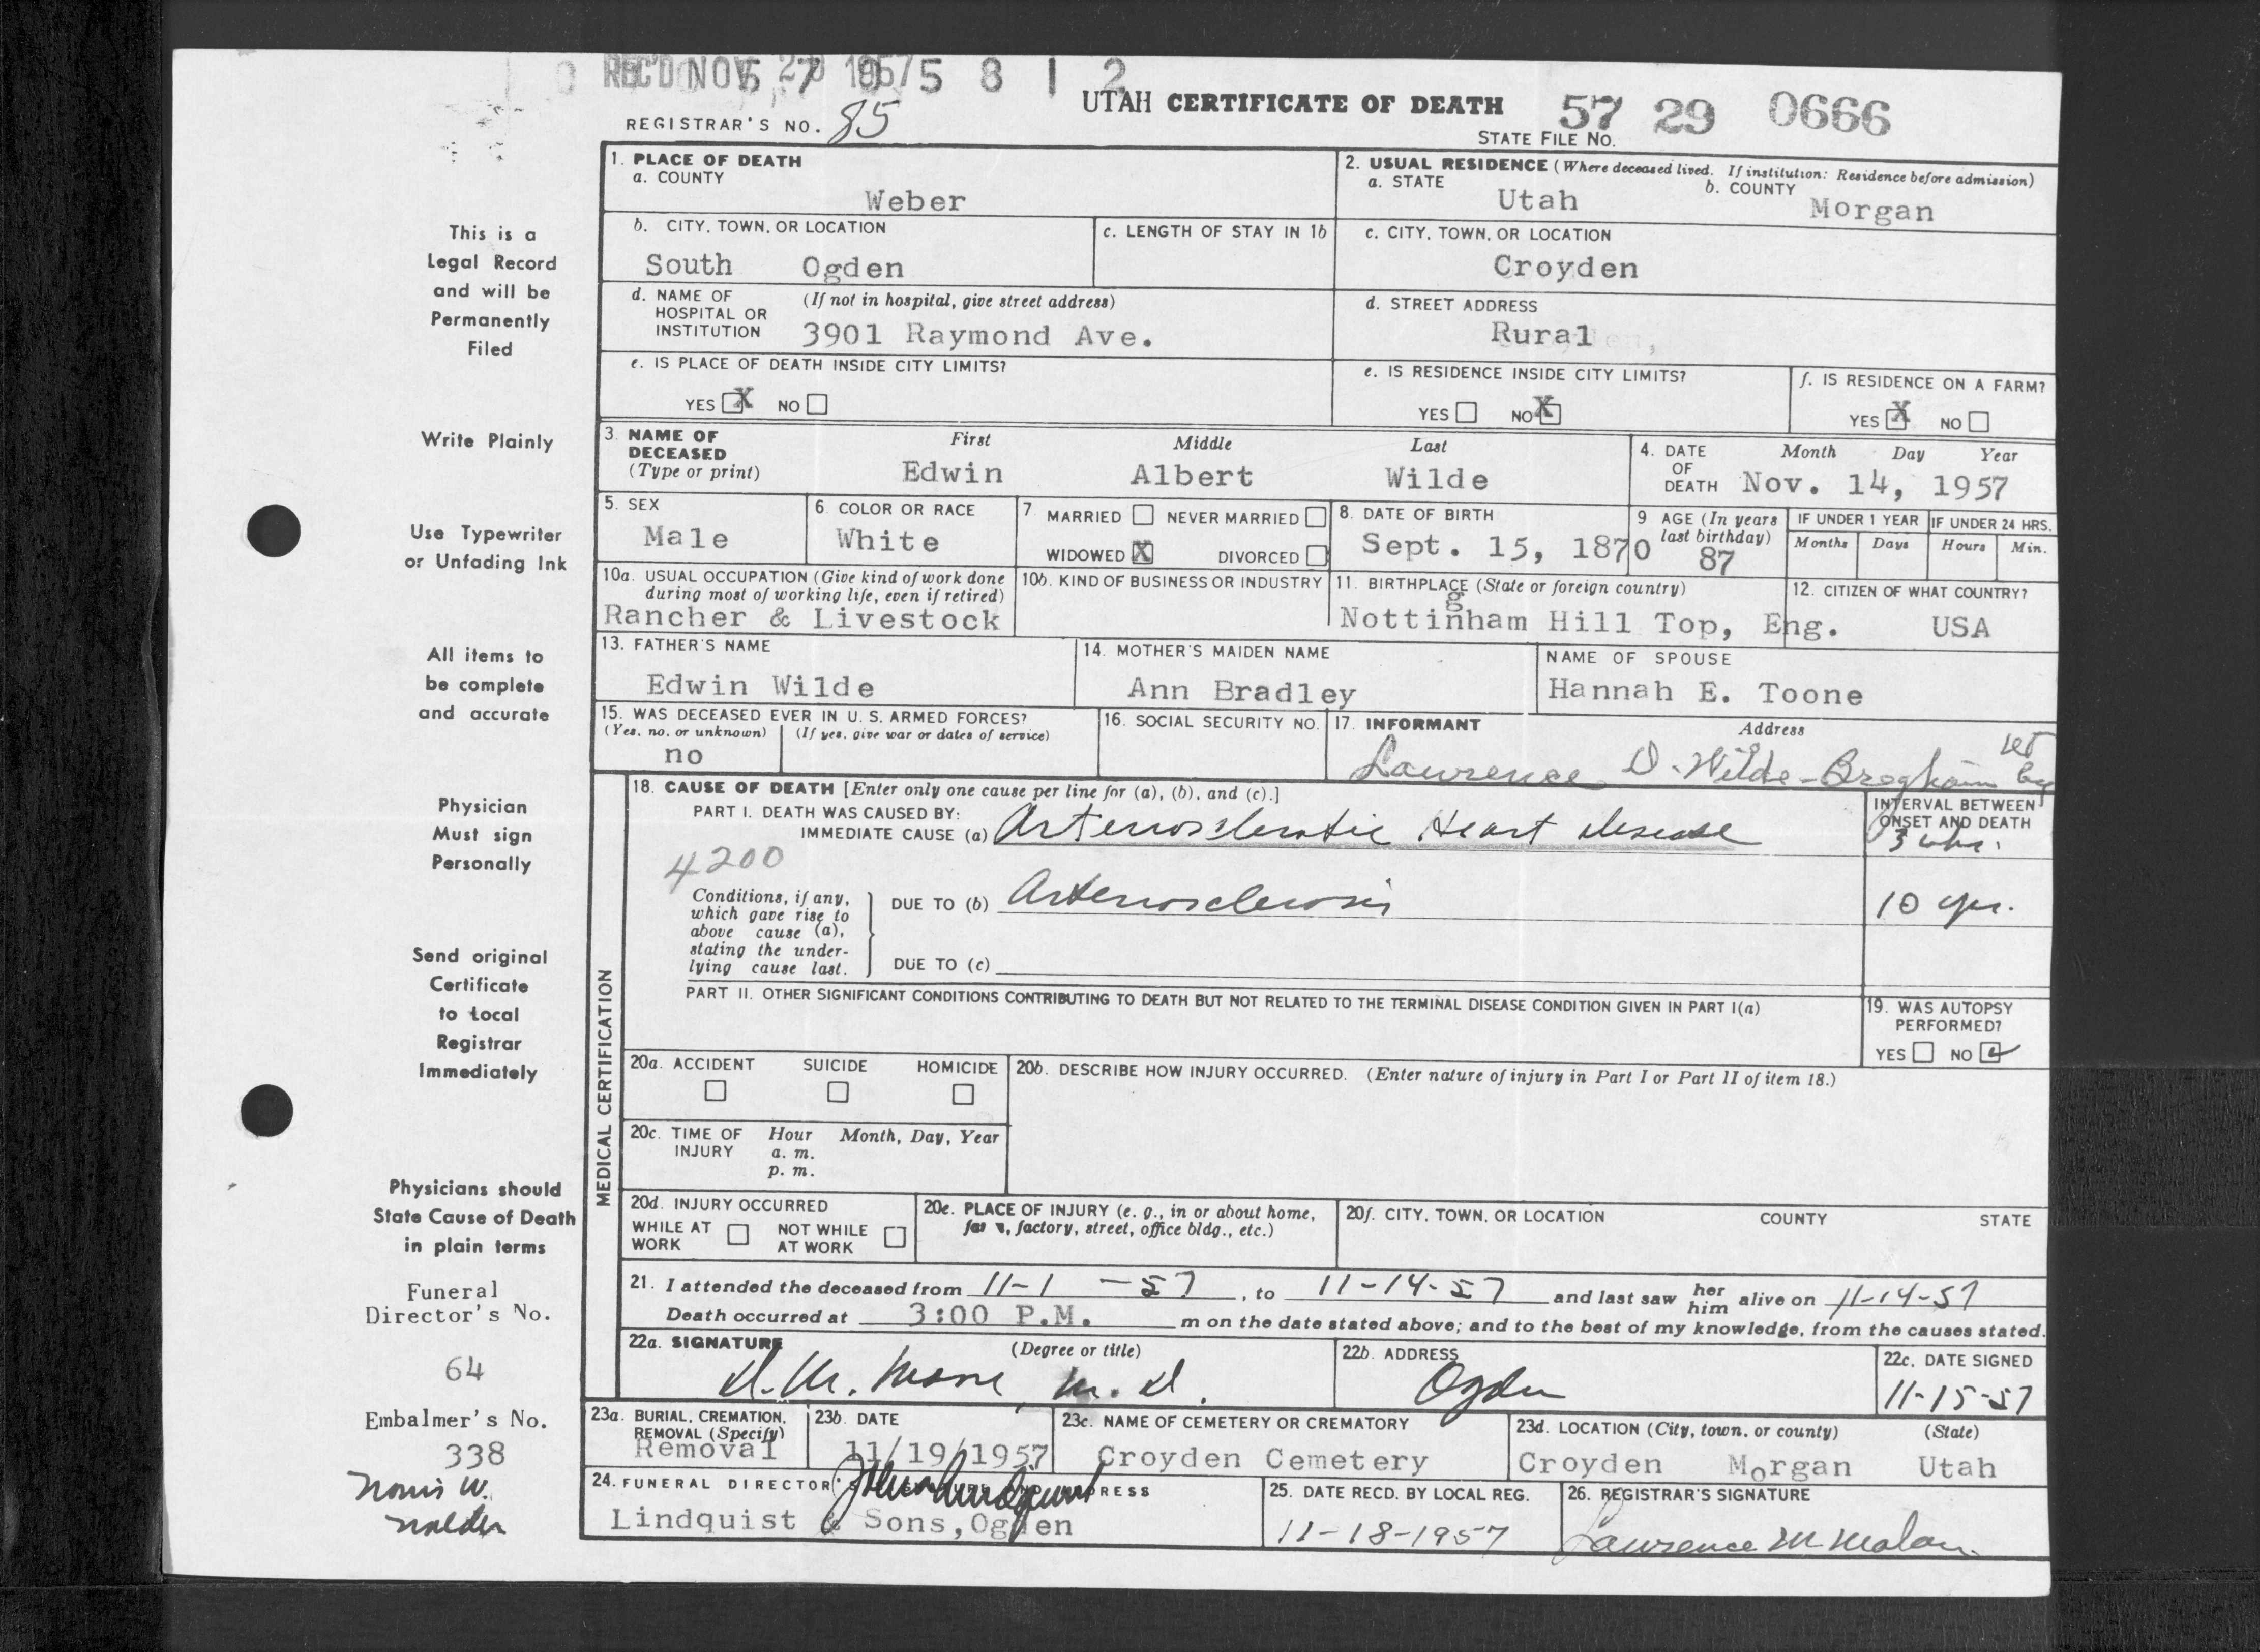 REC'D NOV 20 1957
5 7 0 5 8 1 2
UTAH CERTIFICATE OF DEATH 57 29 0666
REGISTRAR'S NO. 85
STATE FILE NO.
1. PLACE OF DEATH
a. COUNTY
Weber
2. USUAL RESIDENCE (Where deceased lived. If institution: Residence before admission)
a. STATE b. COUNTY
Utah Morgan
b. CITY, TOWN, OR LOCATION c. LENGTH OF STAY IN 1b
South Ogden
c. CITY, TOWN, OR LOCATION
Croyden
d. NAME OF HOSPITAL OR INSTITUTION (If not in hospital, give street address)
3901 Raymond Ave.
d. STREET ADDRESS
Rural
e. IS PLACE OF DEATH INSIDE CITY LIMITS?
YES X NO
e. IS RESIDENCE INSIDE CITY LIMITS?
YES NO X
f. IS RESIDENCE ON A FARM?
YES X NO
3. NAME OF DECEASED (Type or print) First Middle Last
Edwin Albert Wilde
4. DATE OF DEATH Month Day Year
Nov. 14, 1957
5. SEX
Male
6. COLOR OR RACE
White
7. MARRIED NEVER MARRIED
WIDOWED X DIVORCED
8. DATE OF BIRTH
Sept. 15, 1870
9 AGE (In years last birthday)
87
IF UNDER 1 YEAR IF UNDER 24 HRS.
Months Days Hours Min.
10a. USUAL OCCUPATION (Give kind of work done during most of working life, even if retired)
Rancher & Livestock
10b. KIND OF BUSINESS OR INDUSTRY
11. BIRTHPLACE (State or foreign country)
g
Nottinham Hill Top, Eng.
12. CITIZEN OF WHAT COUNTRY?
USA
13. FATHER'S NAME
Edwin Wilde
14. MOTHER'S MAIDEN NAME
Ann Bradley
NAME OF SPOUSE
Hannah E. Toone
15. WAS DECEASED EVER IN U. S. ARMED FORCES?
(Yes, no, or unknown) (If yes, give war or dates of service)
no
16. SOCIAL SECURITY NO.
17. INFORMANT Address
Lawrence D. Wilde - Brogham
MEDICAL CERTIFICATION
18. CAUSE OF DEATH [Enter only one cause per line for (a), (b), and (c).]
PART I. DEATH WAS CAUSED BY:
IMMEDIATE CAUSE (a) Arteriosclerotic Heart disease
INTERVAL BETWEEN ONSET AND DEATH
3 wks.
4200
Conditions, if any, which gave rise to above cause (a), stating the under-lying cause last.
DUE TO (b) Arteriosclerosis
10 yrs.
DUE TO (c)
PART II. OTHER SIGNIFICANT CONDITIONS CONTRIBUTING TO DEATH BUT NOT RELATED TO THE TERMINAL DISEASE CONDITION GIVEN IN PART I(a)
19. WAS AUTOPSY PERFORMED?
YES NO
20a. ACCIDENT SUICIDE HOMICIDE
20b. DESCRIBE HOW INJURY OCCURRED. (Enter nature of injury in Part I or Part II of item 18.)
20c. TIME OF INJURY Hour Month, Day, Year
a. m.
p. m.
20d. INJURY OCCURRED
WHILE AT WORK NOT WHILE AT WORK
20e. PLACE OF INJURY (e. g., in or about home, farm, factory, street, office bldg., etc.)
20f. CITY, TOWN, OR LOCATION COUNTY STATE
21. I attended the deceased from 11-1-57, to 11-14-57 and last saw her him alive on 11-14-57
Death occurred at 3:00 P.M. m on the date stated above; and to the best of my knowledge, from the causes stated.
22a. SIGNATURE (Degree or title)
M. D.
22b. ADDRESS
Ogden
22c. DATE SIGNED
11-15-57
23a. BURIAL, CREMATION, REMOVAL (Specify)
Removal
23b. DATE
11/19/1957
23c. NAME OF CEMETERY OR CREMATORY
Croyden Cemetery
23d. LOCATION (City, town, or county) (State)
Croyden Morgan Utah
24. FUNERAL DIRECTOR'S SIGNATURE AND ADDRESS
Lindquist & Sons, Ogden
25. DATE RECD. BY LOCAL REG.
11-18-1957
26. REGISTRAR'S SIGNATURE
Lawrence M Malan
This is a
Legal Record
and will be
Permanently
Filed
Write Plainly
Use Typewriter
or Unfading Ink
All items to
be complete
and accurate
Physician
Must sign
Personally
Send original
Certificate
to Local
Registrar
Immediately
Physicians should
State Cause of Death
in plain terms
Funeral
Director's No.
64
Embalmer's No.
338
Norris W.
Nalder